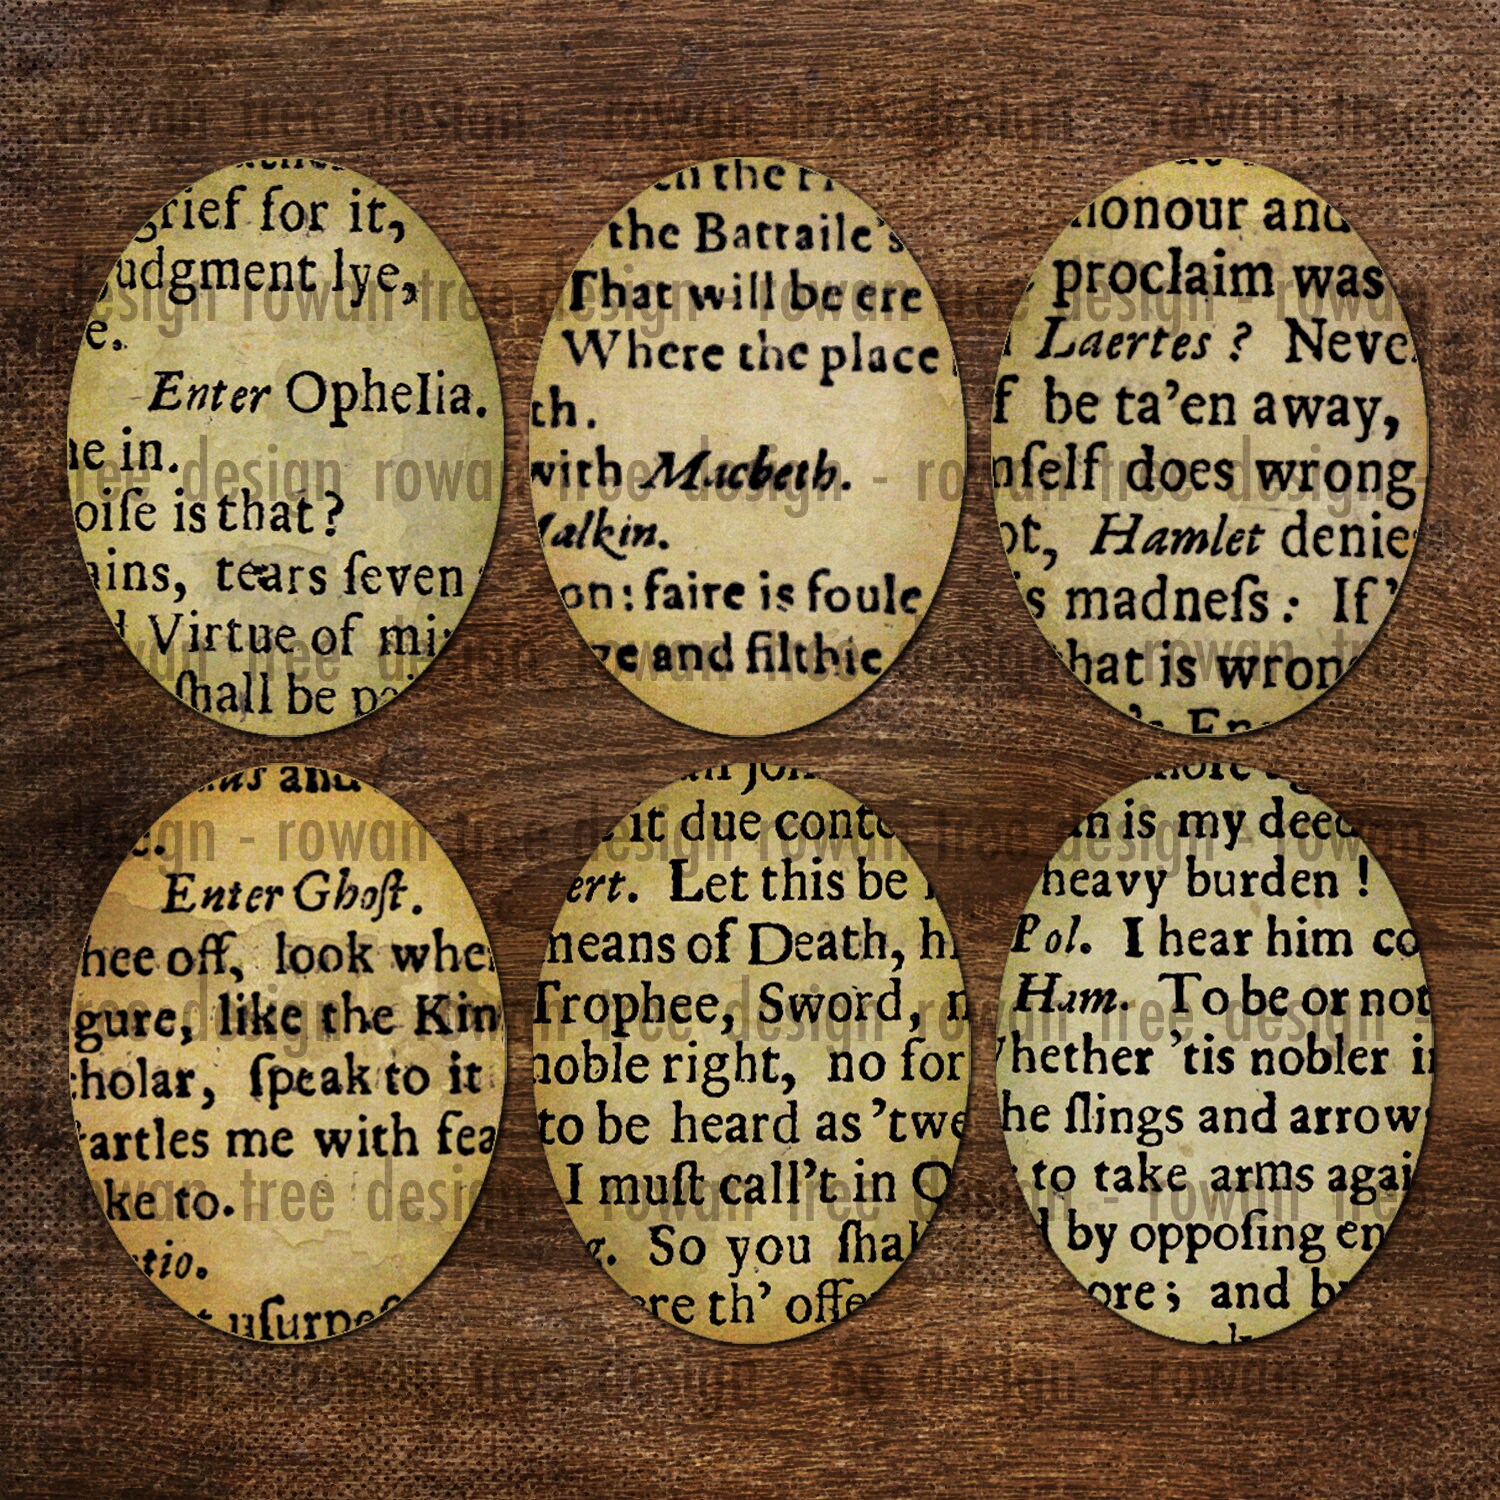 grief for it,
judgment lye,
e.
Enter Ophelia.
ne in.
oiſe is that?
ains, tears ſeven
d Virtue of mi
ſhall be
the Battaile's
That will be ere
Where the place
th.
with Macbeth.
Malkin.
on: faire is foule
and filthie
honour and
proclaim was
Laertes? Never
f be ta'en away,
mſelf does wrong
ot, Hamlet denies
s madneſs: If '
hat is wrong
and
Enter Ghoſt.
hee off, look whe
gure, like the Kin
cholar, ſpeak to it
ſtartles me with fea
ke to.
tio.
uſurpeſ
it due conte
ert. Let this be
means of Death, hi
Trophee, Sword,
noble right, no for
to be heard as 'twe
I muſt call't in Q
g. So you ſhal
ere th' offe
n is my deed
heavy burden!
Pol. I hear him co
Ham. To be or not
Whether 'tis nobler i
he ſlings and arrows
to take arms agai
d by oppoſing en
ore; and by
rowan tree design - rowan tree design - rowan tree
design rowan tree design - rowan
tree design rowan - rowan tree design -
rowan tree design
design - rowan tree design - rowan tree design - rowan
tree design rowan tree design
rowan tree design - rowan tree design - rowan tree